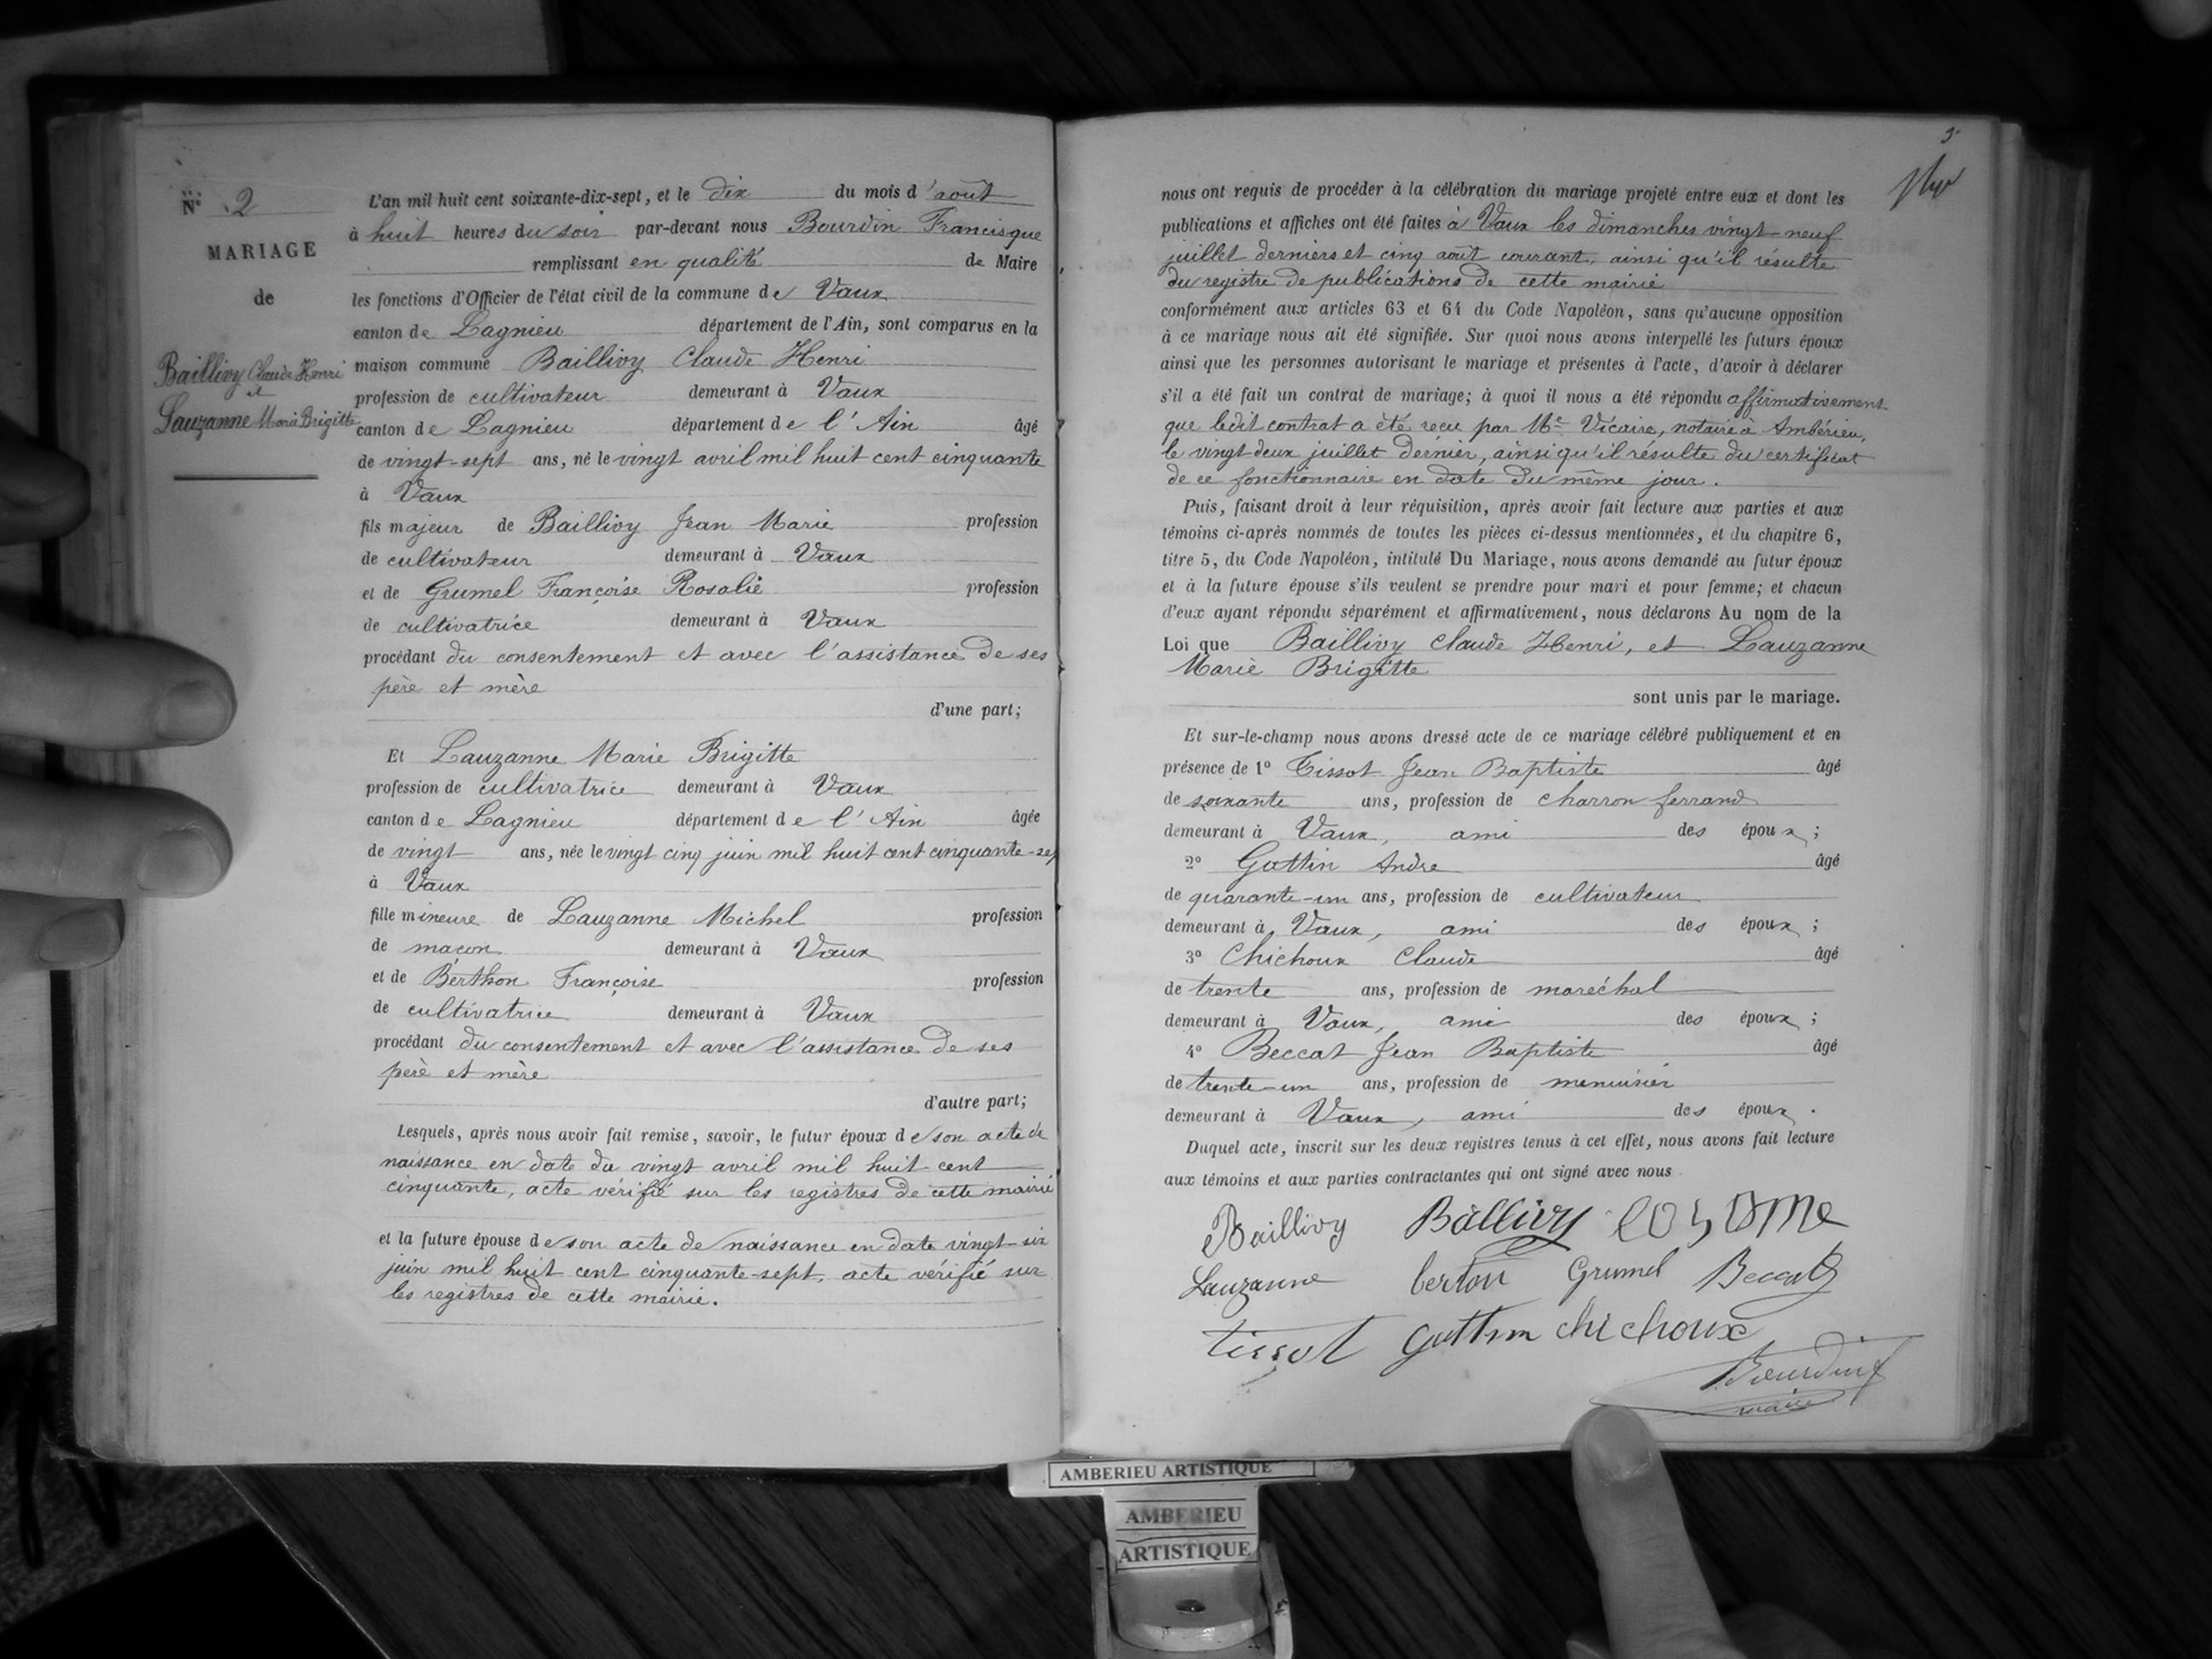 N° 2
MARIAGE
de
Baillivy Claude Henri
et
Lauzanne Marie Brigitte
L'an mil huit cent soixante-dix-sept, et le dix du mois d'août
à huit heures du soir par-devant nous Bourdin Francisque
remplissant en qualité de Maire
les fonctions d'Officier de l'état civil de la commune de Vaux
canton de Lagnieu département de l'Ain, sont comparus en la
maison commune Baillivy Claude Henri
profession de cultivateur demeurant à Vaux
canton de Lagnieu département de l'Ain âgé
de vingt-sept ans, né le vingt avril mil huit cent cinquante
à Vaux
fils majeur de Baillivy Jean Marie profession
de cultivateur demeurant à Vaux
et de Grumel Françoise Rosalie profession
de cultivatrice demeurant à Vaux
procédant du consentement et avec l'assistance de ses
père et mère
d'une part;
Et Lauzanne Marie Brigitte
profession de cultivatrice demeurant à Vaux
canton de Lagnieu département de l'Ain âgée
de vingt ans, née le vingt cinq juin mil huit cent cinquante-sep
à Vaux
fille mineure de Lauzanne Michel profession
de maçon demeurant à Vaux
et de Berthon Françoise profession
de cultivatrice demeurant à Vaux
procédant du consentement et avec l'assistance de ses
père et mère
d'autre part;
Lesquels, après nous avoir fait remise, savoir, le futur époux de son acte de
naissance en date du vingt avril mil huit cent
cinquante, acte vérifié sur les registres de cette mairie
et la future épouse de son acte de naissance en date vingt-six
juin mil huit cent cinquante-sept, acte vérifié sur
les registres de cette mairie.
3
nous ont requis de procéder à la célébration du mariage projeté entre eux et dont les
publications et affiches ont été faites à Vaux les dimanches vingt-neuf
juillet derniers et cinq août courant, ainsi qu'il résulte
du registre de publications de cette mairie
conformément aux articles 63 et 64 du Code Napoléon, sans qu'aucune opposition
à ce mariage nous ait été signifiée. Sur quoi nous avons interpellé les futurs époux
ainsi que les personnes autorisant le mariage et présentes à l'acte, d'avoir à déclarer
s'il a été fait un contrat de mariage; à quoi il nous a été répondu affirmativement
que ledit contrat a été reçu par Me Vicaire, notaire à Ambérieu,
le vingt-deux juillet dernier, ainsi qu'il résulte du certificat
de ce fonctionnaire en date du même jour.
Puis, faisant droit à leur réquisition, après avoir fait lecture aux parties et aux
témoins ci-après nommés de toutes les pièces ci-dessus mentionnées, et du chapitre 6,
titre 5, du Code Napoléon, intitulé Du Mariage, nous avons demandé au futur époux
et à la future épouse s'ils veulent se prendre pour mari et pour femme; et chacun
d'eux ayant répondu séparément et affirmativement, nous déclarons Au nom de la
Loi que Baillivy Claude Henri, et Lauzanne
Marie Brigitte
sont unis par le mariage.
Et sur-le-champ nous avons dressé acte de ce mariage célébré publiquement et en
présence de 1° Tissot Jean Baptiste âgé
de soixante ans, profession de charron ferrand
demeurant à Vaux, ami des époux;
2° Gottin Andre âgé
de quarante-un ans, profession de cultivateur
demeurant à Vaux, ami des époux;
3° Chichoux Claude âgé
de trente ans, profession de maréchal
demeurant à Vaux, ami des époux;
4° Beccat Jean Baptiste âgé
de trente-un ans, profession de menuisier
demeurant à Vaux, ami des époux.
Duquel acte, inscrit sur les deux registres tenus à cet effet, nous avons fait lecture
aux témoins et aux parties contractantes qui ont signé avec nous
Baillivy Ballivy
Lauzanne berton Grumel Beccat
tissot Gottin chichoux
Bourdin
maire
AMBERIEU ARTISTIQUE
AMBERIEU
ARTISTIQUE